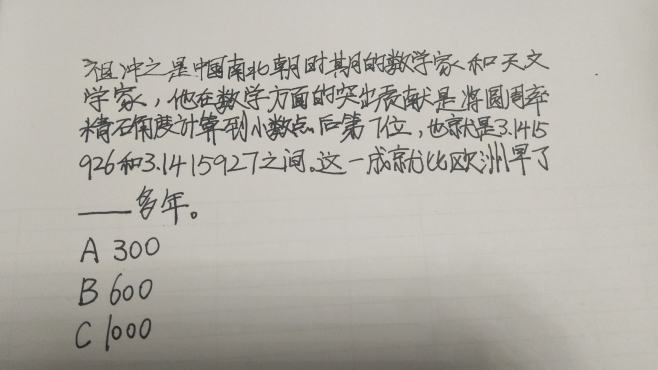 祖冲之是中国南北朝时期的数学家和天文
学家，他在数学方面的突出贡献是将圆周率
精确度计算到小数点后第7位，也就是3.1415
926和3.1415927之间。这一成就比欧洲早了
____多年。
A 300
B 600
C 1000